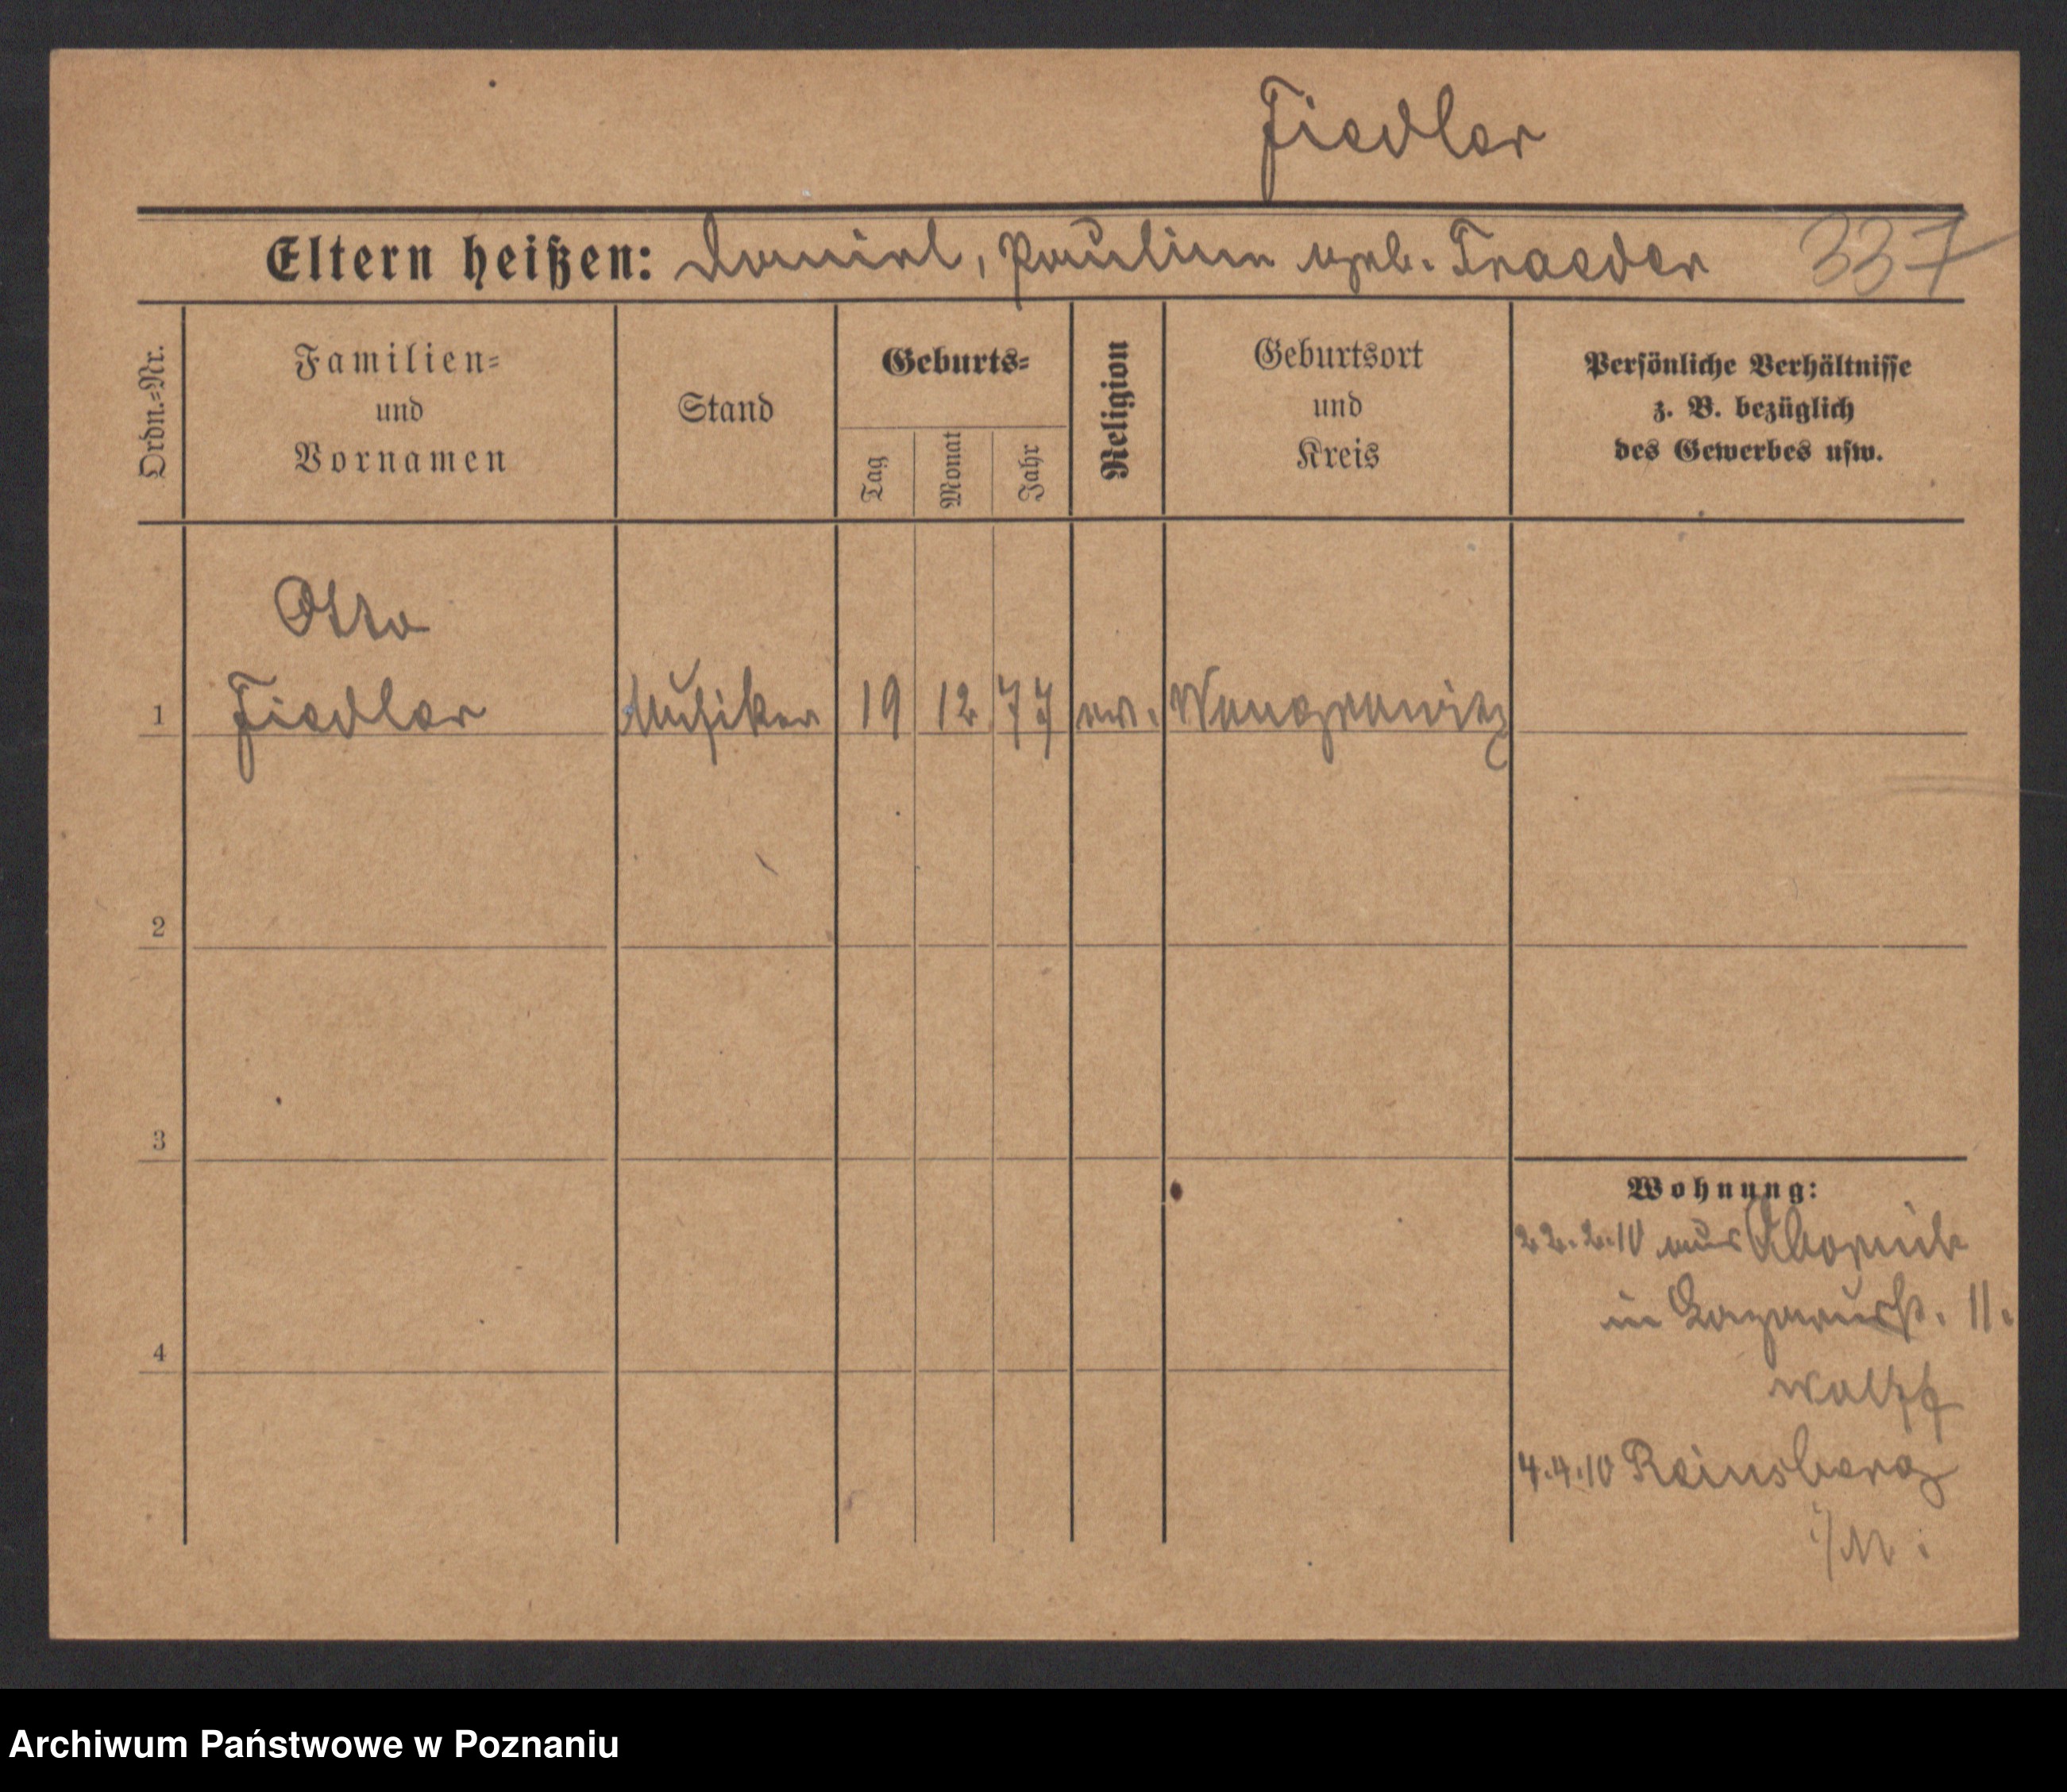 Fiedler
Eltern heißen: Daniel, Pauline geb. Traeder 337
Ordn.-Nr.
Familien-
und
Vornamen
Stand
Geburts-
Tag
Monat
Jahr
Religion
Geburtsort
und
Kreis
Persönliche Verhältnisse
z. B. bezüglich
des Gewerbes usw.
Otto
1 Fiedler Musiker 19 12 77 ev. Wongrowitz
2
3
4
Wohnung:
22.2.10 aus
in Lazarusst. 11.
Wolff
4.4.10 Reinsberg
i/M.
Archiwum Państwowe w Poznaniu